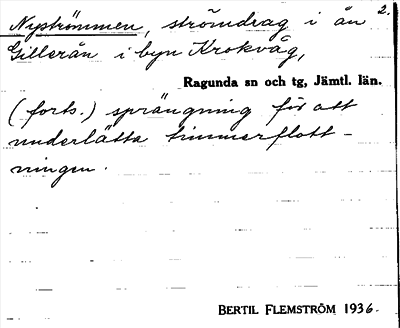 2.
Nyströmmen, strömdrag i ån
Gillerån i byn Krokvåg,
Ragunda sn och tg, Jämtl. län.
(forts.) sprängning för att
underlätta timmerflott-
ningen.
BERTIL FLEMSTRÖM 1936.